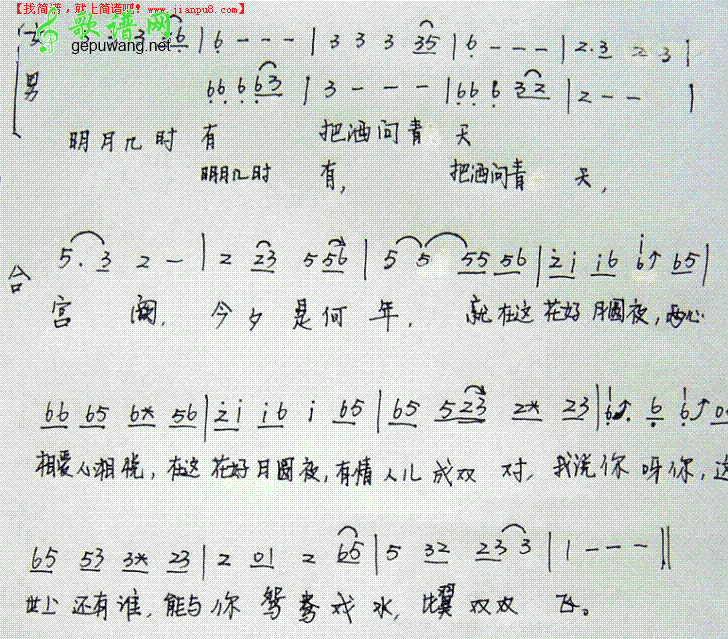 【找简谱，就上简谱吧！www.jianpu8.com】
歌谱网
gepuwang.net
女 3 · 3 · 6 | 6 - - - | 3 3 3 35 | 6 - - - | 2·3 2 3 |
男 66 6 63 | 3 - - - | 66 6 32 | 2 - - |
明月几时 有 把酒问青 天
明月几时 有, 把酒问青 天,
合 5·3 2 - | 2 23 5 56 | 5 5 55 56 | 2i i6 6↑ 65 |
宫 阙, 今夕 是何 年, 就在这花好月圆夜, 两心
66 65 6* 56 | 2i i6 i 65 | 65 523 2* 23 |
相爱心相悦, 在这花好月圆夜, 有情人儿成双对, 我说你呀你, 这
65 53 3* 23 | 2 01 2 65 | 5 32 23 3 | 1 - - - ||
世上还有谁, 能与你鸳鸯戏水, 比翼双双飞。